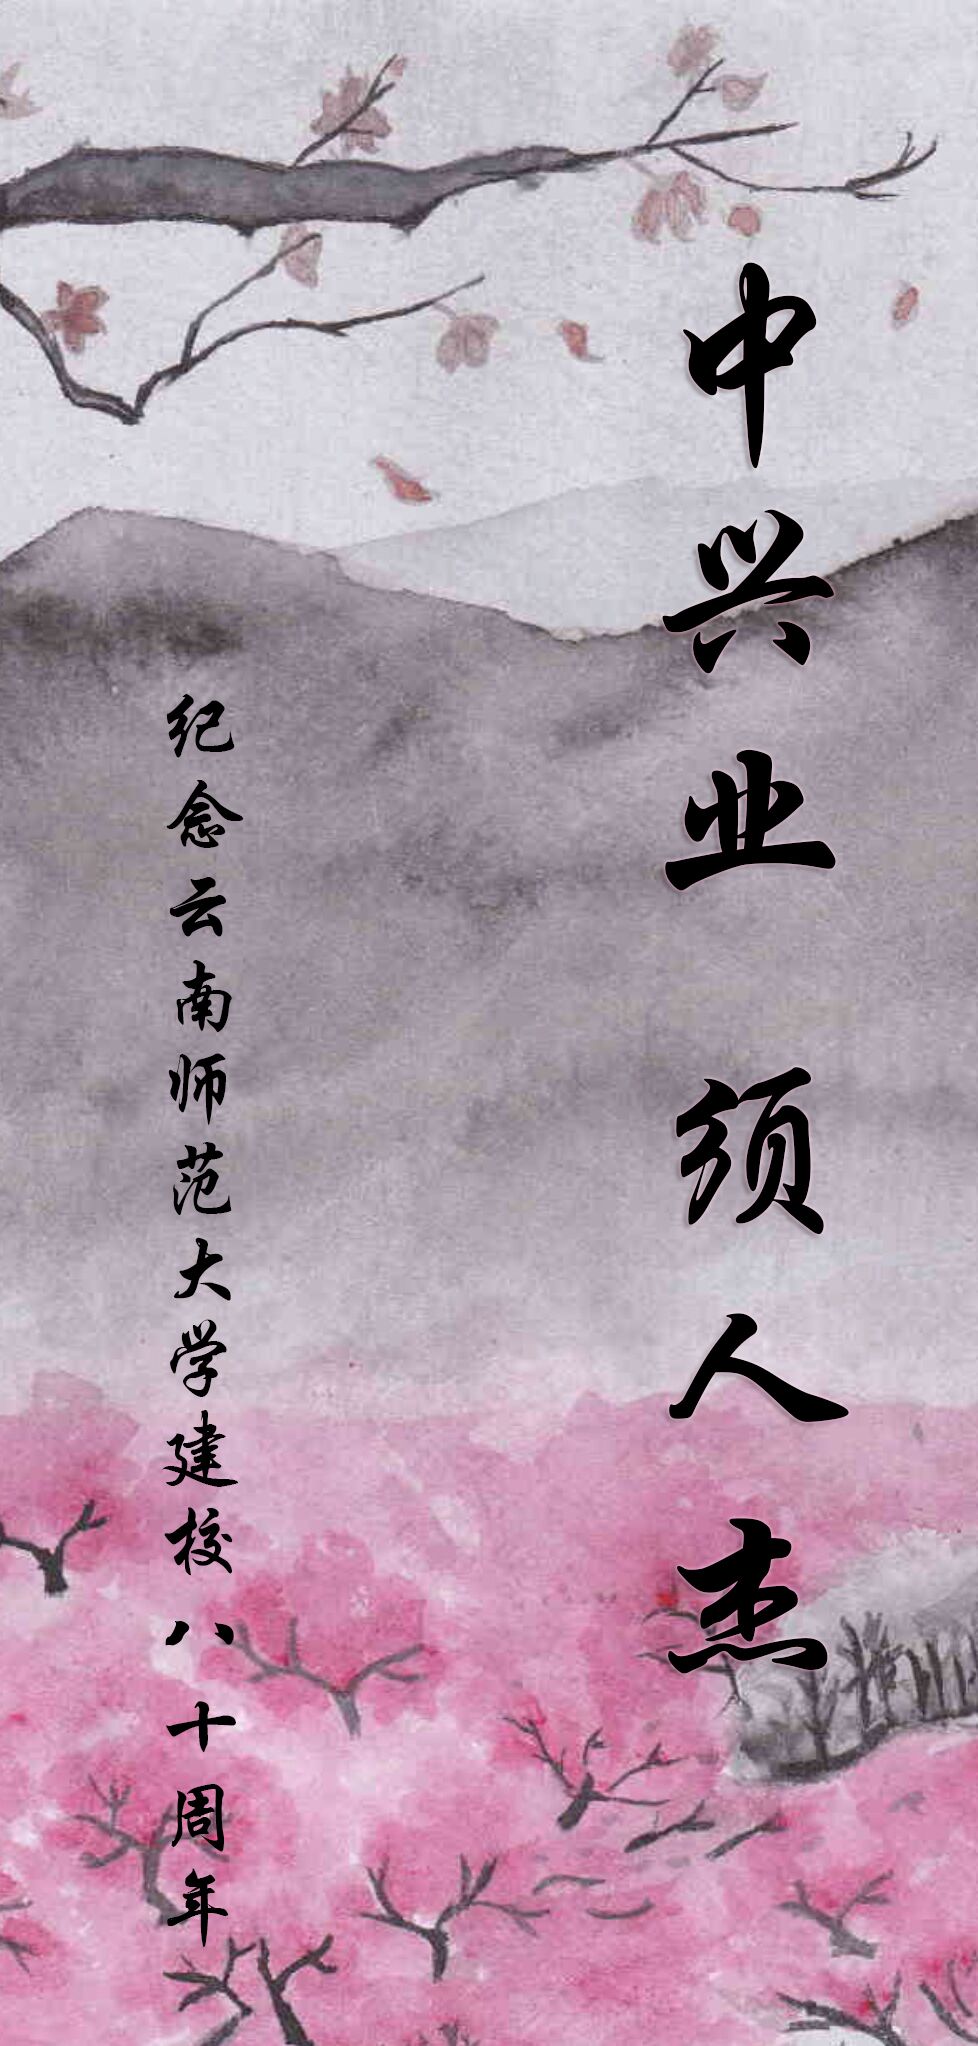 中兴业须人杰
纪念云南师范大学建校八十周年